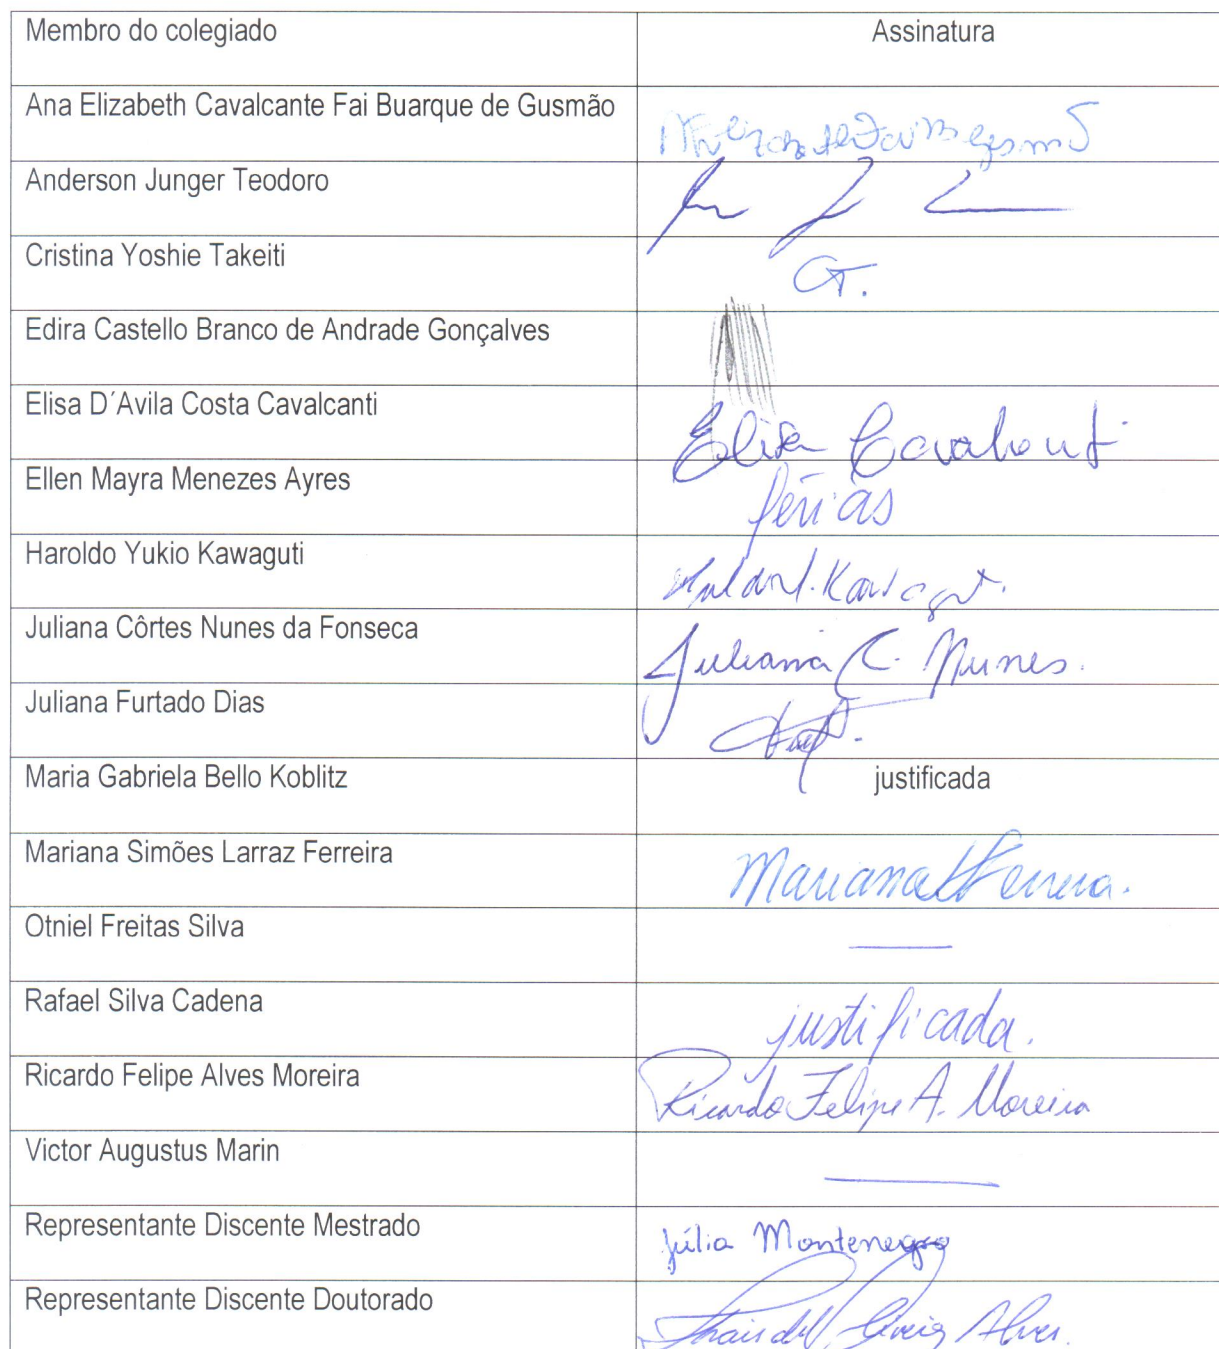 Membro do colegiado Assinatura
Ana Elizabeth Cavalcante Fai Buarque de Gusmão
Anderson Junger Teodoro
Cristina Yoshie Takeiti CT.
Edira Castello Branco de Andrade Gonçalves
Elisa D´Avila Costa Cavalcanti Elisa Cavalcanti
Ellen Mayra Menezes Ayres férias
Haroldo Yukio Kawaguti
Juliana Côrtes Nunes da Fonseca Juliana C. Nunes.
Juliana Furtado Dias
Maria Gabriela Bello Koblitz justificada
Mariana Simões Larraz Ferreira Mariana Ferreira.
Otniel Freitas Silva
Rafael Silva Cadena justificada.
Ricardo Felipe Alves Moreira Ricardo Felipe A. Moreira
Victor Augustus Marin
Representante Discente Mestrado Júlia Montenegro
Representante Discente Doutorado Alves.